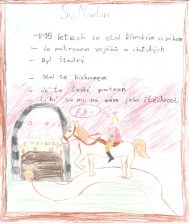 Sv. Martin
- V 15 letech se stal římským vojákem
- Je patronem vojáků a chudých
- Byl štědrý
- stal se biskupem
- Je to český patron
- Líbí se mi na něm jeho štědrost